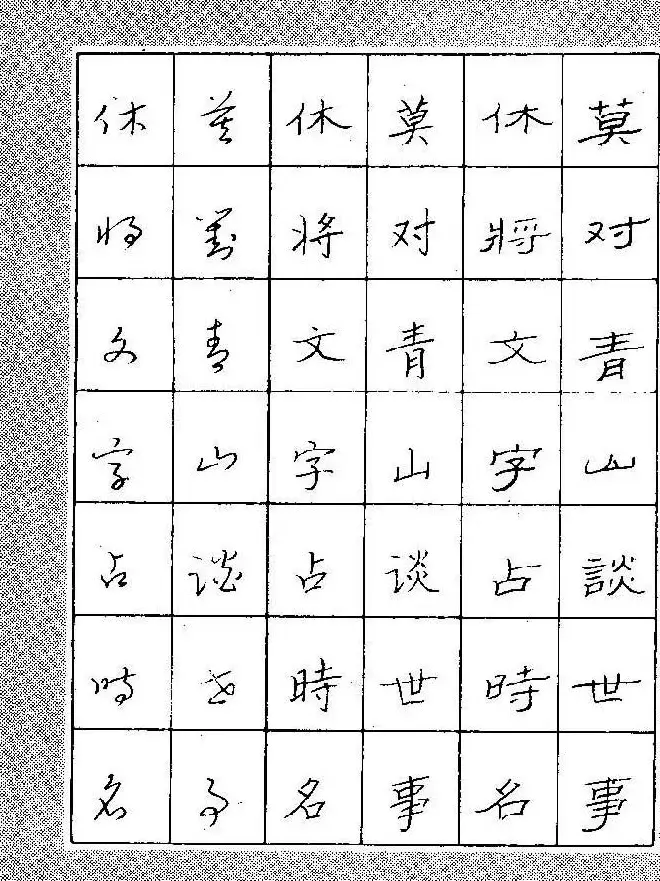 莫对青山談世事
休將文字占時名
莫对青山谈世事
休將文字占時名
莫對青山谈世事
休将文字占时名